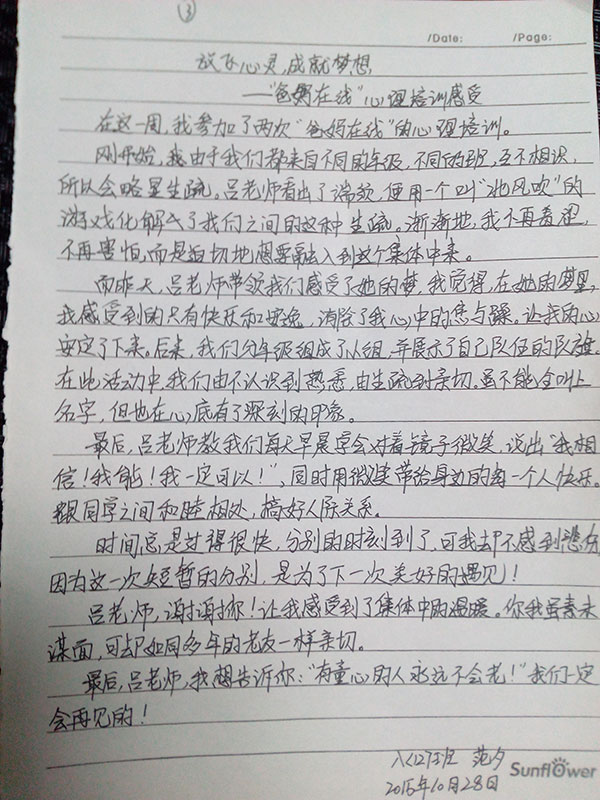 ③
/Date: /Page:
放飞心灵,成就梦想
——“爸妈在线”心理培训感受
在这一周,我参加了两次“爸妈在线”的心理培训。
刚开始,我由于我们都来自不同的年级,不同的班,互不相识,
所以会略显生疏。吕老师看出了端倪,便用一个叫“北风吹”的
游戏化解了我们之间的这种生疏。渐渐地,我不再羞涩,
不再害怕,而是迫切地想要融入到这个集体中来。
而昨天,吕老师带领我们感受了她的梦。我觉得,在她的梦里,
我感受到的只有快乐和安逸,消除了我心中的焦与躁。让我的心
安定了下来。后来,我们分年级组成了队组,并展示了自己队伍的队旗。
在此活动中,我们由不认识到熟悉,由生疏到亲切。虽不能全叫上
名字,但也在心底有了深刻的印象。
最后,吕老师教我们每天早晨会对着镜子微笑,说出“我相
信!我能!我一定可以!”,同时用微笑带给身边的每一个人快乐。
跟同学之间和睦相处,搞好人际关系。
时间总是过得很快,分别的时刻到了,可我却不感到悲伤,
因为这一次短暂的分别,是为了下一次美好的遇见!
吕老师,谢谢你!让我感受到了集体中的温暖。你我虽素未
谋面,可却如同多年的老友一样亲切。
最后,吕老师,我想告诉你:“有童心的人永远不会老!”我们一定
会再见的!
八(12)班 范夕
2015年10月28日
Sunflower